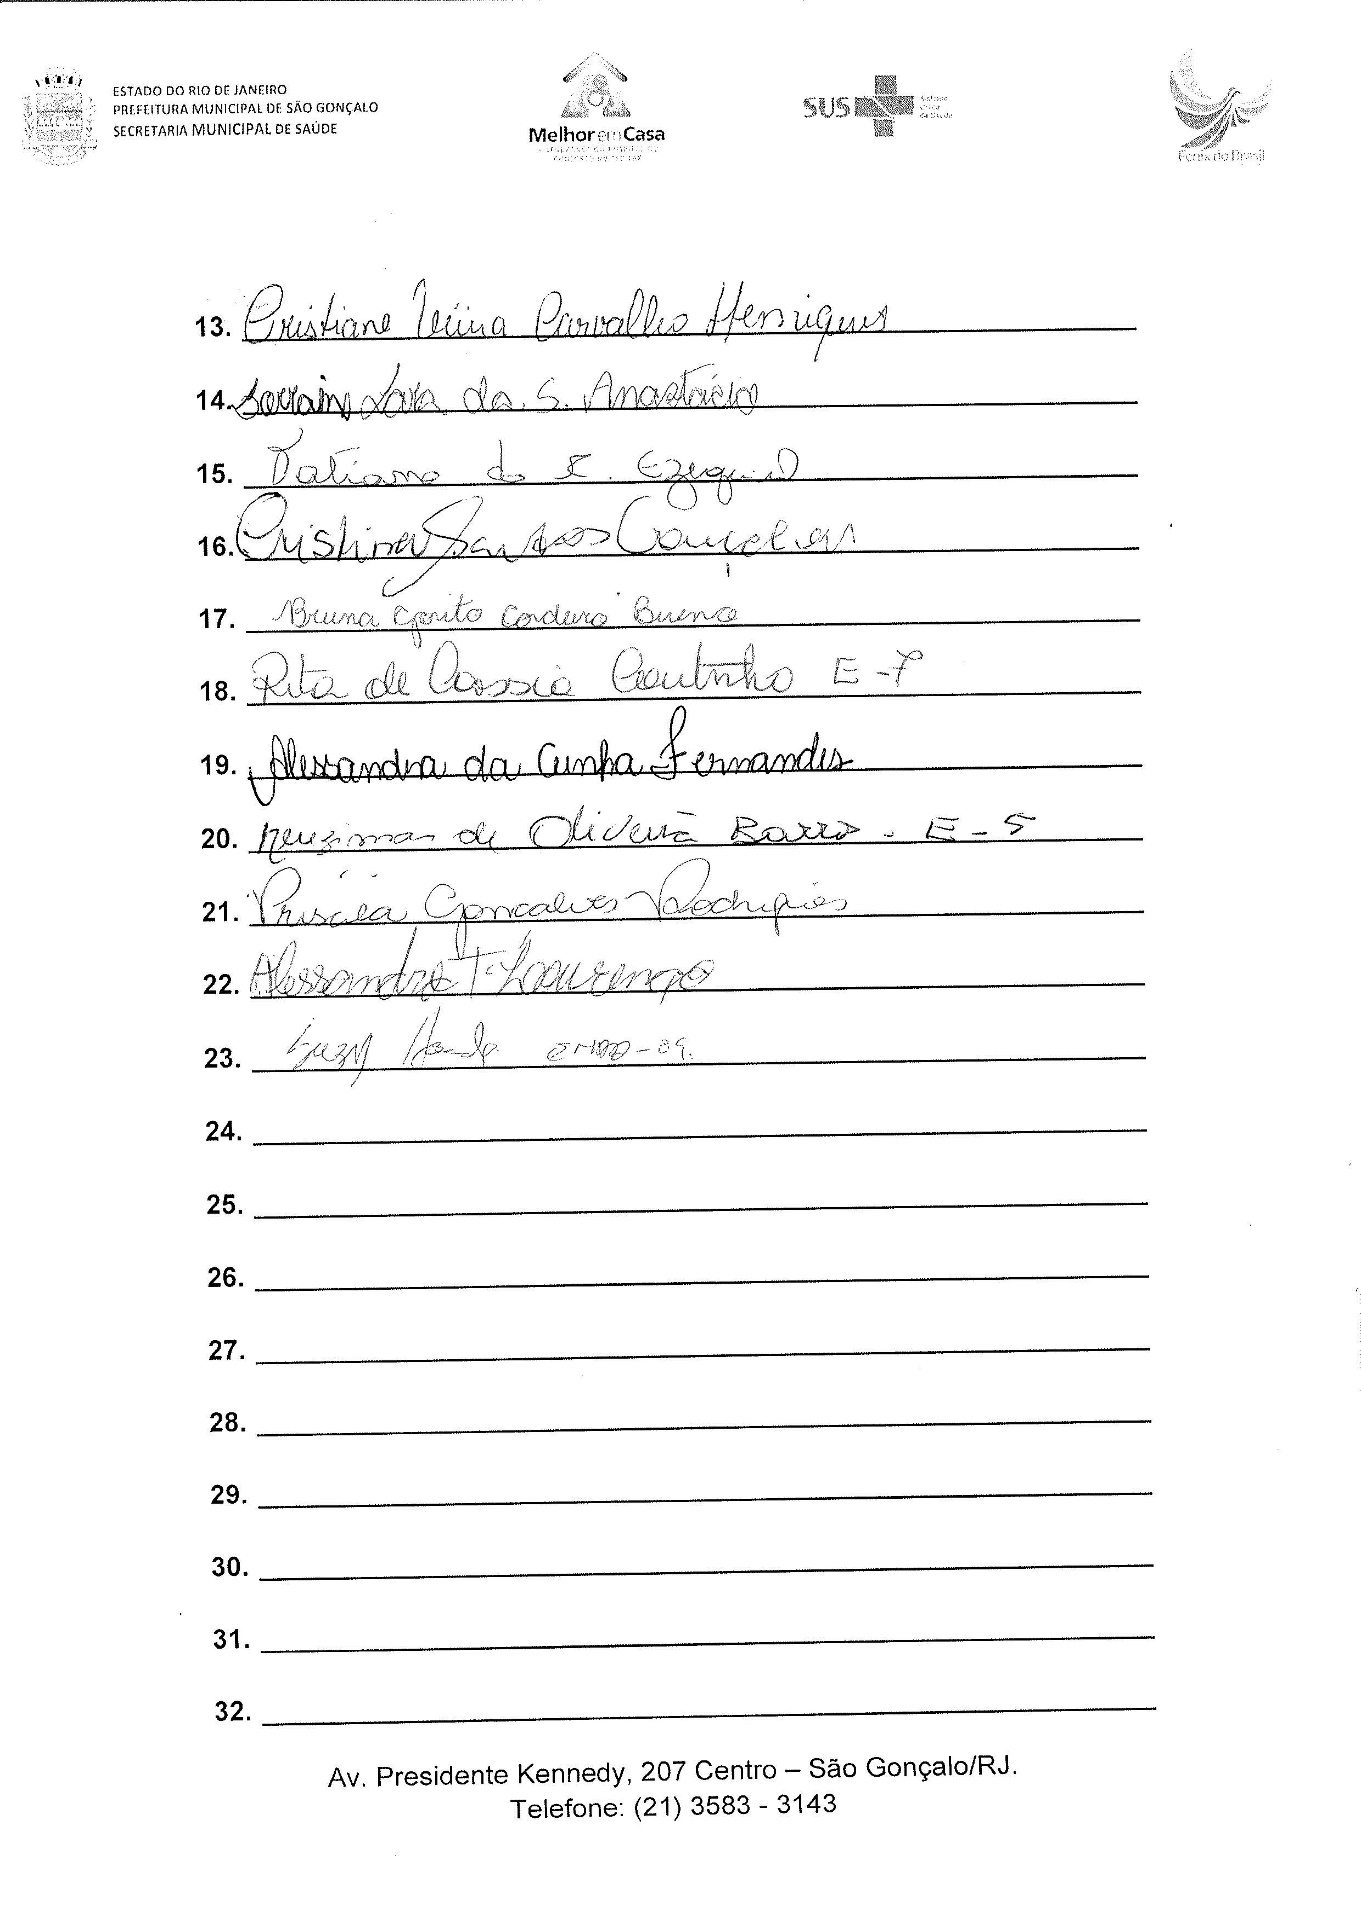 ESTADO DO RIO DE JANEIRO
PREFEITURA MUNICIPAL DE SÃO GONÇALO
SECRETARIA MUNICIPAL DE SAÚDE
Melhor em Casa
SUS
13. Cristiane Carvalho Henriques
14. Lorraine Lara da S. Anastácio
15. Tatiana da Ezequiel
16. Cristina Santos
17. Bruna Cordeiro Bueno
18. Rita de Cassia Coutinho E-7
19. Alessandra da Cunha Fernandes
20. Neuzimar de Oliveira Barros - E-5
21. Priscila Goncalves Rodrigues
22. Alessandra T. Lourenço
23. Suzy
24.
25.
26.
27.
28.
29.
30.
31.
32.
Av. Presidente Kennedy, 207 Centro – São Gonçalo/RJ.
Telefone: (21) 3583 - 3143